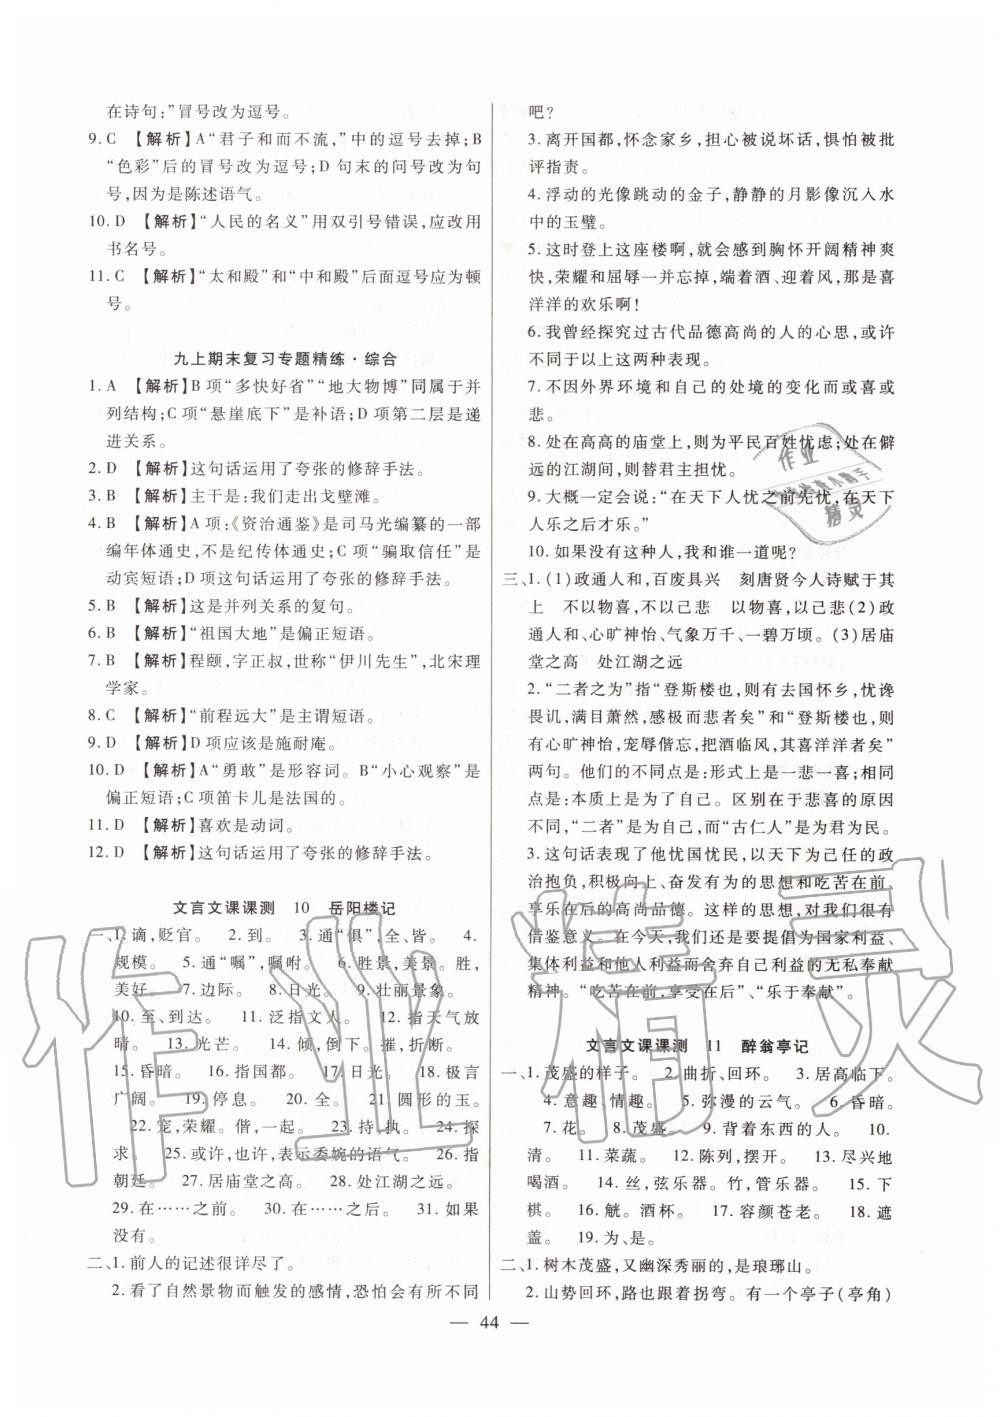 在诗句:”冒号改为逗号。
9. C 【解析】A“君子和而不流,”中的逗号去掉;B
“色彩”后的冒号改为逗号;D 句末的问号改为句
号,因为是陈述语气。
10. D 【解析】“人民的名义”用双引号错误,应改用
书名号。
11. C 【解析】“太和殿”和“中和殿”后面逗号应为顿
号。
九上期末复习专题精练·综合
1. A 【解析】B 项“多快好省”“地大物博”同属于并
列结构;C 项“悬崖底下”是补语;D 项第二层是递
进关系。
2. D 【解析】这句话运用了夸张的修辞手法。
3. B 【解析】主干是:我们走出戈壁滩。
4. B 【解析】A 项:《资治通鉴》是司马光编纂的一部
编年体通史,不是纪传体通史;C 项“骗取信任”是
动宾短语;D 项这句话运用了夸张的修辞手法。
5. B 【解析】这是并列关系的复句。
6. B 【解析】“祖国大地”是偏正短语。
7. B 【解析】程颐,字正叔,世称“伊川先生”,北宋理
学家。
8. C 【解析】“前程远大”是主谓短语。
9. D 【解析】D 项应该是施耐庵。
10. D 【解析】A“勇敢”是形容词。B“小心观察”是
偏正短语;C 项笛卡儿是法国的。
11. D 【解析】喜欢是动词。
12. D 【解析】这句话运用了夸张的修辞手法。
文言文课课测 10 岳阳楼记
一、1. 谪,贬官。 2. 到。 3. 通“俱”,全、皆。 4.
规模。 5. 通“嘱”,嘱咐。 6. 胜景,美景。胜,
美好。 7. 边际。 8. 日光。 9. 壮丽景象。
10. 至、到达。 11. 泛指文人。 12. 指天气放
晴。 13. 光芒。 14. 倒下。摧,折断。
15. 昏暗。 16. 指国都。 17. 日光。 18. 极言
广阔。 19. 停息。 20. 全。 21. 圆形的玉。
22. 宠,荣耀。偕,一起。 23. 持,执。 24. 探
求。 25. 或许,也许,表示委婉的语气。 26. 指
朝廷。 27. 居庙堂之高。 28. 处江湖之远。
29. 在……之前。 30. 在……之后。 31. 如果
没有。
二、1. 前人的记述很详尽了。
2. 看了自然景物而触发的感情,恐怕会有所不同
吧?
3. 离开国都,怀念家乡,担心被说坏话,惧怕被批
评指责。
4. 浮动的光像跳动的金子,静静的月影像沉入水
中的玉璧。
5. 这时登上这座楼啊,就会感到胸怀开阔精神爽
快,荣耀和屈辱一并忘掉,端着酒、迎着风,那是喜
洋洋的欢乐啊!
6. 我曾经探究过古代品德高尚的人的心思,或许
不同于以上这两种表现。
7. 不因外界环境和自己的处境的变化而或喜或
悲。
8. 处在高高的庙堂上,则为平民百姓忧虑;处在僻
远的江湖间,则替君主担忧。
9. 大概一定会说:“在天下人忧之前先忧,在天下
人乐之后才乐。”
10. 如果没有这种人,我和谁一道呢?
三、1. (1)政通人和,百废具兴 刻唐贤今人诗赋于其
上 不以物喜,不以己悲 以物喜,以己悲(2)政
通人和、心旷神怡、气象万千、一碧万顷。(3)居庙
堂之高 处江湖之远
2. “二者之为”指“登斯楼也,则有去国怀乡,忧谗
畏讥,满目萧然,感极而悲者矣”和“登斯楼也,则
有心旷神怡,宠辱偕忘,把酒临风,其喜洋洋者矣”
两句。他们的不同点是:形式上是一悲一喜;相同
点是:本质上是为自己。区别在于悲喜的原因
不同,“二者”为自己,而“古仁人”为君为民。
3. 这句话表现了他忧国忧民,以天下为己任的政
治抱负,积极向上、奋发有为的思想和吃苦在前,
享乐在后的高尚品德。这种思想,在现在仍很有
借鉴意义。在今天,我们大力提倡为国家利益、
集体利益和他人利益而舍弃自己利益的无私奉献
精神。“吃苦在前,享受在后”、“乐于奉献”。
文言文课课测 11 醉翁亭记
一、1. 茂盛的样子。 2. 曲折、回环。 3. 居高临下。
4. 意趣,情趣。 5. 弥漫的云气。 6. 昏暗。
7. 花。 8. 茂盛。 9. 背着东西的人。 10.
清。 11. 菜蔬。 12. 陈列,摆开。 13. 尽兴地
喝酒。 14. 丝,弦乐器。竹,管乐器。 15. 下
棋。 16. 觥。酒杯。 17. 容颜苍老。 18. 遮
盖。 19. 为、是。
二、1. 树木茂盛,又幽深秀丽的,是琅琊山。
2. 山势回环,路也跟着拐弯。有一个亭子(亭角)
— 44 —
作业精灵
作业
精灵